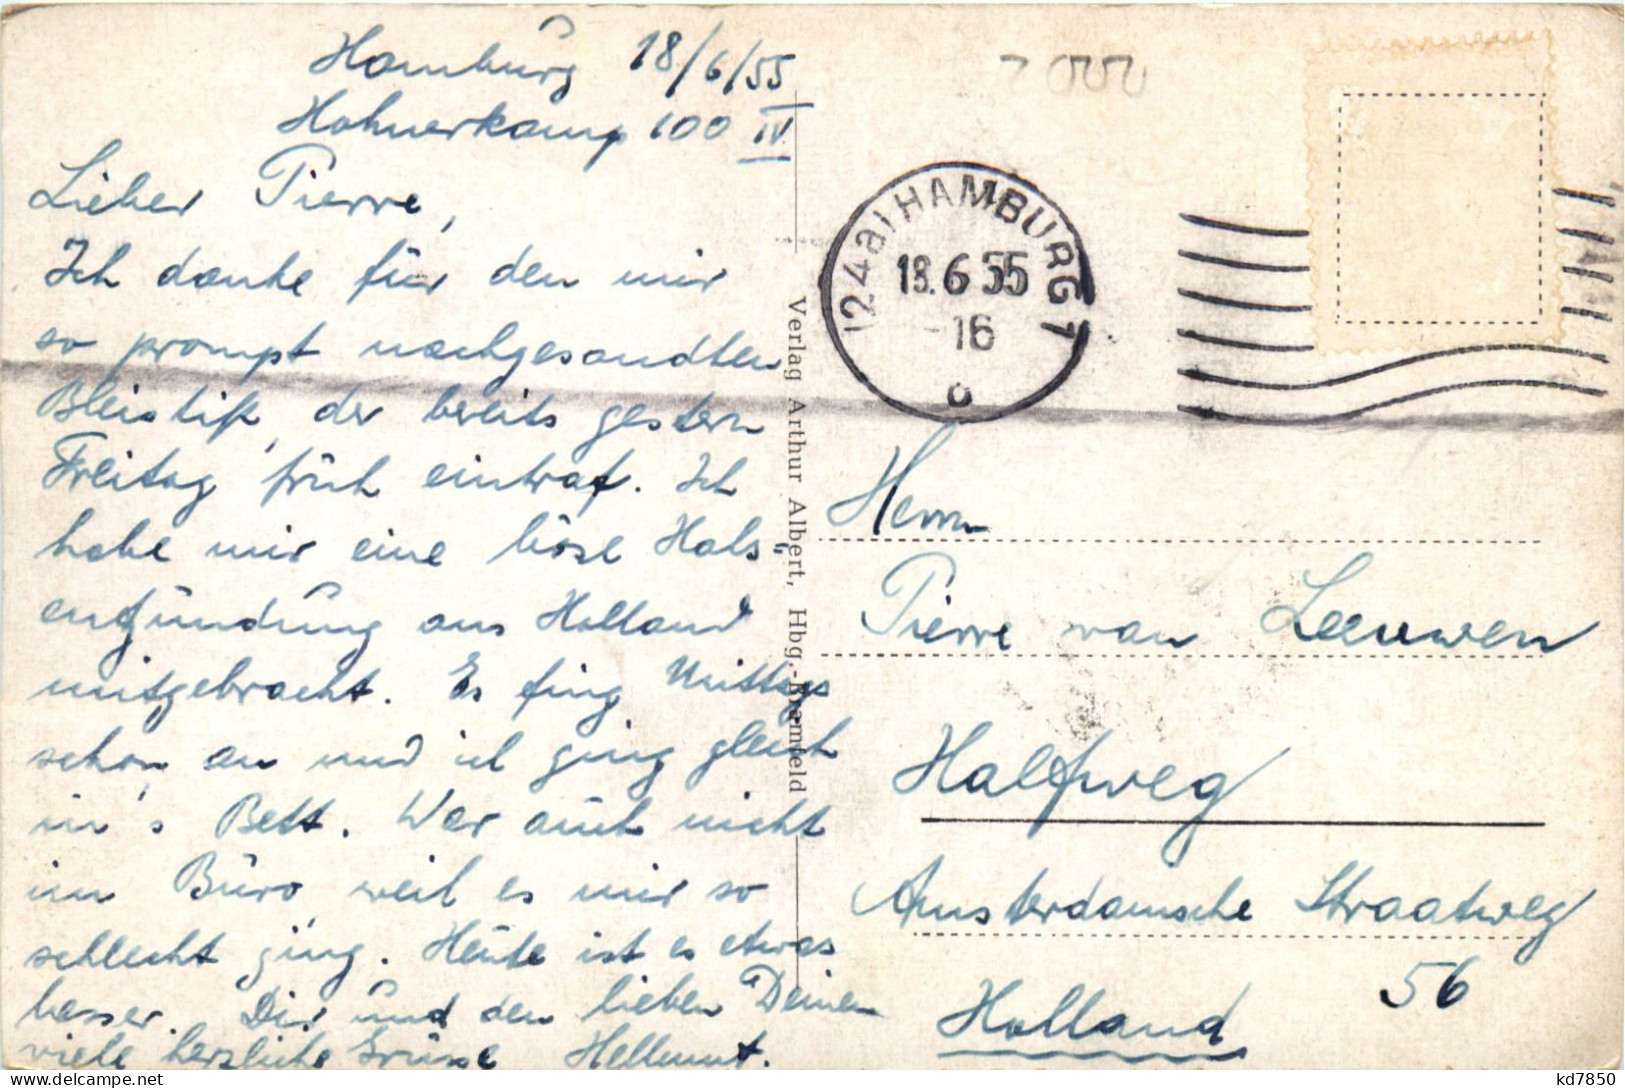 Hamburg 18/6/55
Hohnerkamp 100 IV
Lieber Pierre,
Ich danke für den mir
so prompt nachgesandten
Bleistift, der bereits gestern
Freitag früh eintraf. Ich
habe mir eine böse Hals-
entzündung aus Holland
mitgebracht. Es fing Mittags
schon an und ich ging gleich
in's Bett. War auch nicht
im Büro, weil es mir so
schlecht ging. Heute ist es etwas
besser. Dir und den lieben Deinen
viele herzliche Grüsse Hellmut.
Verlag Arthur Albert, Hbg.-Bramfeld
(24a) HAMBURG 1
18.6.55-16
o
Herrn
Pierre van Leeuwen
Halfweg
Amsterdamsche Straatweg
56
Holland
kd7850